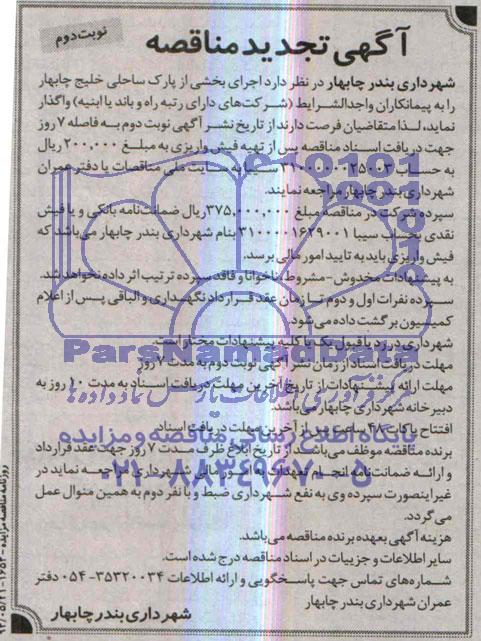 نوبت دوم
آگهی تجدید مناقصه
شهرداری بندر چابهار در نظر دارد اجرای بخشی از پارک ساحلی خلیج چابهار
را به پیمانکاران واجدالشرایط (شرکت‌های دارای رتبه راه و باند یا ابنیه) واگذار
نماید، لذا متقاضیان فرصت دارند از تاریخ نشر آگهی نوبت دوم به فاصله ۷ روز
جهت دریافت اسناد مناقصه پس از تهیه فیش واریزی به مبلغ ۲۰۰,۰۰۰ ریال
به حساب سیبا به سایت ملی مناقصات یا دفتر عمران
شهرداری بندر چابهار مراجعه نمایند.
سپرده شرکت در مناقصه مبلغ ۳۷۵,۰۰۰,۰۰۰ ریال ضمانت‌نامه بانکی و یا فیش
نقدی بحساب سیبا ۳۱۰۰۰۰۱۶۲۹۰۰۱ بنام شهرداری بندر چابهار می‌باشد که
فیش واریزی باید به تایید امور مالی برسد.
به پیشنهادات مخدوش-مشروط-ناخوانا و فاقد سپرده ترتیب اثر داده نخواهد شد.
سپرده نفرات اول و دوم تا زمان عقد قرارداد نگهداری و الباقی پس از اعلام
کمیسیون برگشت داده می‌شود.
شهرداری در رد یا قبول یک یا کلیه پیشنهادات مختار است.
مهلت دریافت اسناد از زمان نشر آگهی نوبت دوم به مدت ۷ روز
مهلت ارائه پیشنهادات از تاریخ آخرین مهلت دریافت اسناد به مدت ۱۰ روز به
دبیرخانه شهرداری چابهار می‌باشد.
افتتاح پاکات ۴۸ ساعت پس از آخرین مهلت دریافت اسناد.
برنده مناقصه موظف می‌باشد از تاریخ ابلاغ ظرف مدت ۷ روز جهت عقد قرارداد
و ارائه ضمانت‌نامه انجام تعهدات به امور مالی شهرداری مراجعه نماید در
غیر اینصورت سپرده وی به نفع شهرداری ضبط و با نفر دوم به همین منوال عمل
می‌گردد.
هزینه آگهی بعهده برنده مناقصه می‌باشد.
سایر اطلاعات و جزییات در اسناد مناقصه درج شده است.
شماره‌های تماس جهت پاسخگویی و ارائه اطلاعات ۳۵۳۲۰۰۳۴-۰۵۴ دفتر
عمران شهرداری بندر چابهار
شهرداری بندر چابهار
ParsNamadData
مرکز فرآوری اطلاعات پارس نماد داده‌ها
پایگاه اطلاع رسانی مناقصه و مزایده
۰۲۱-۸۸۳۴۹۶۷۰-۵
روزنامه مناقصه مزایده